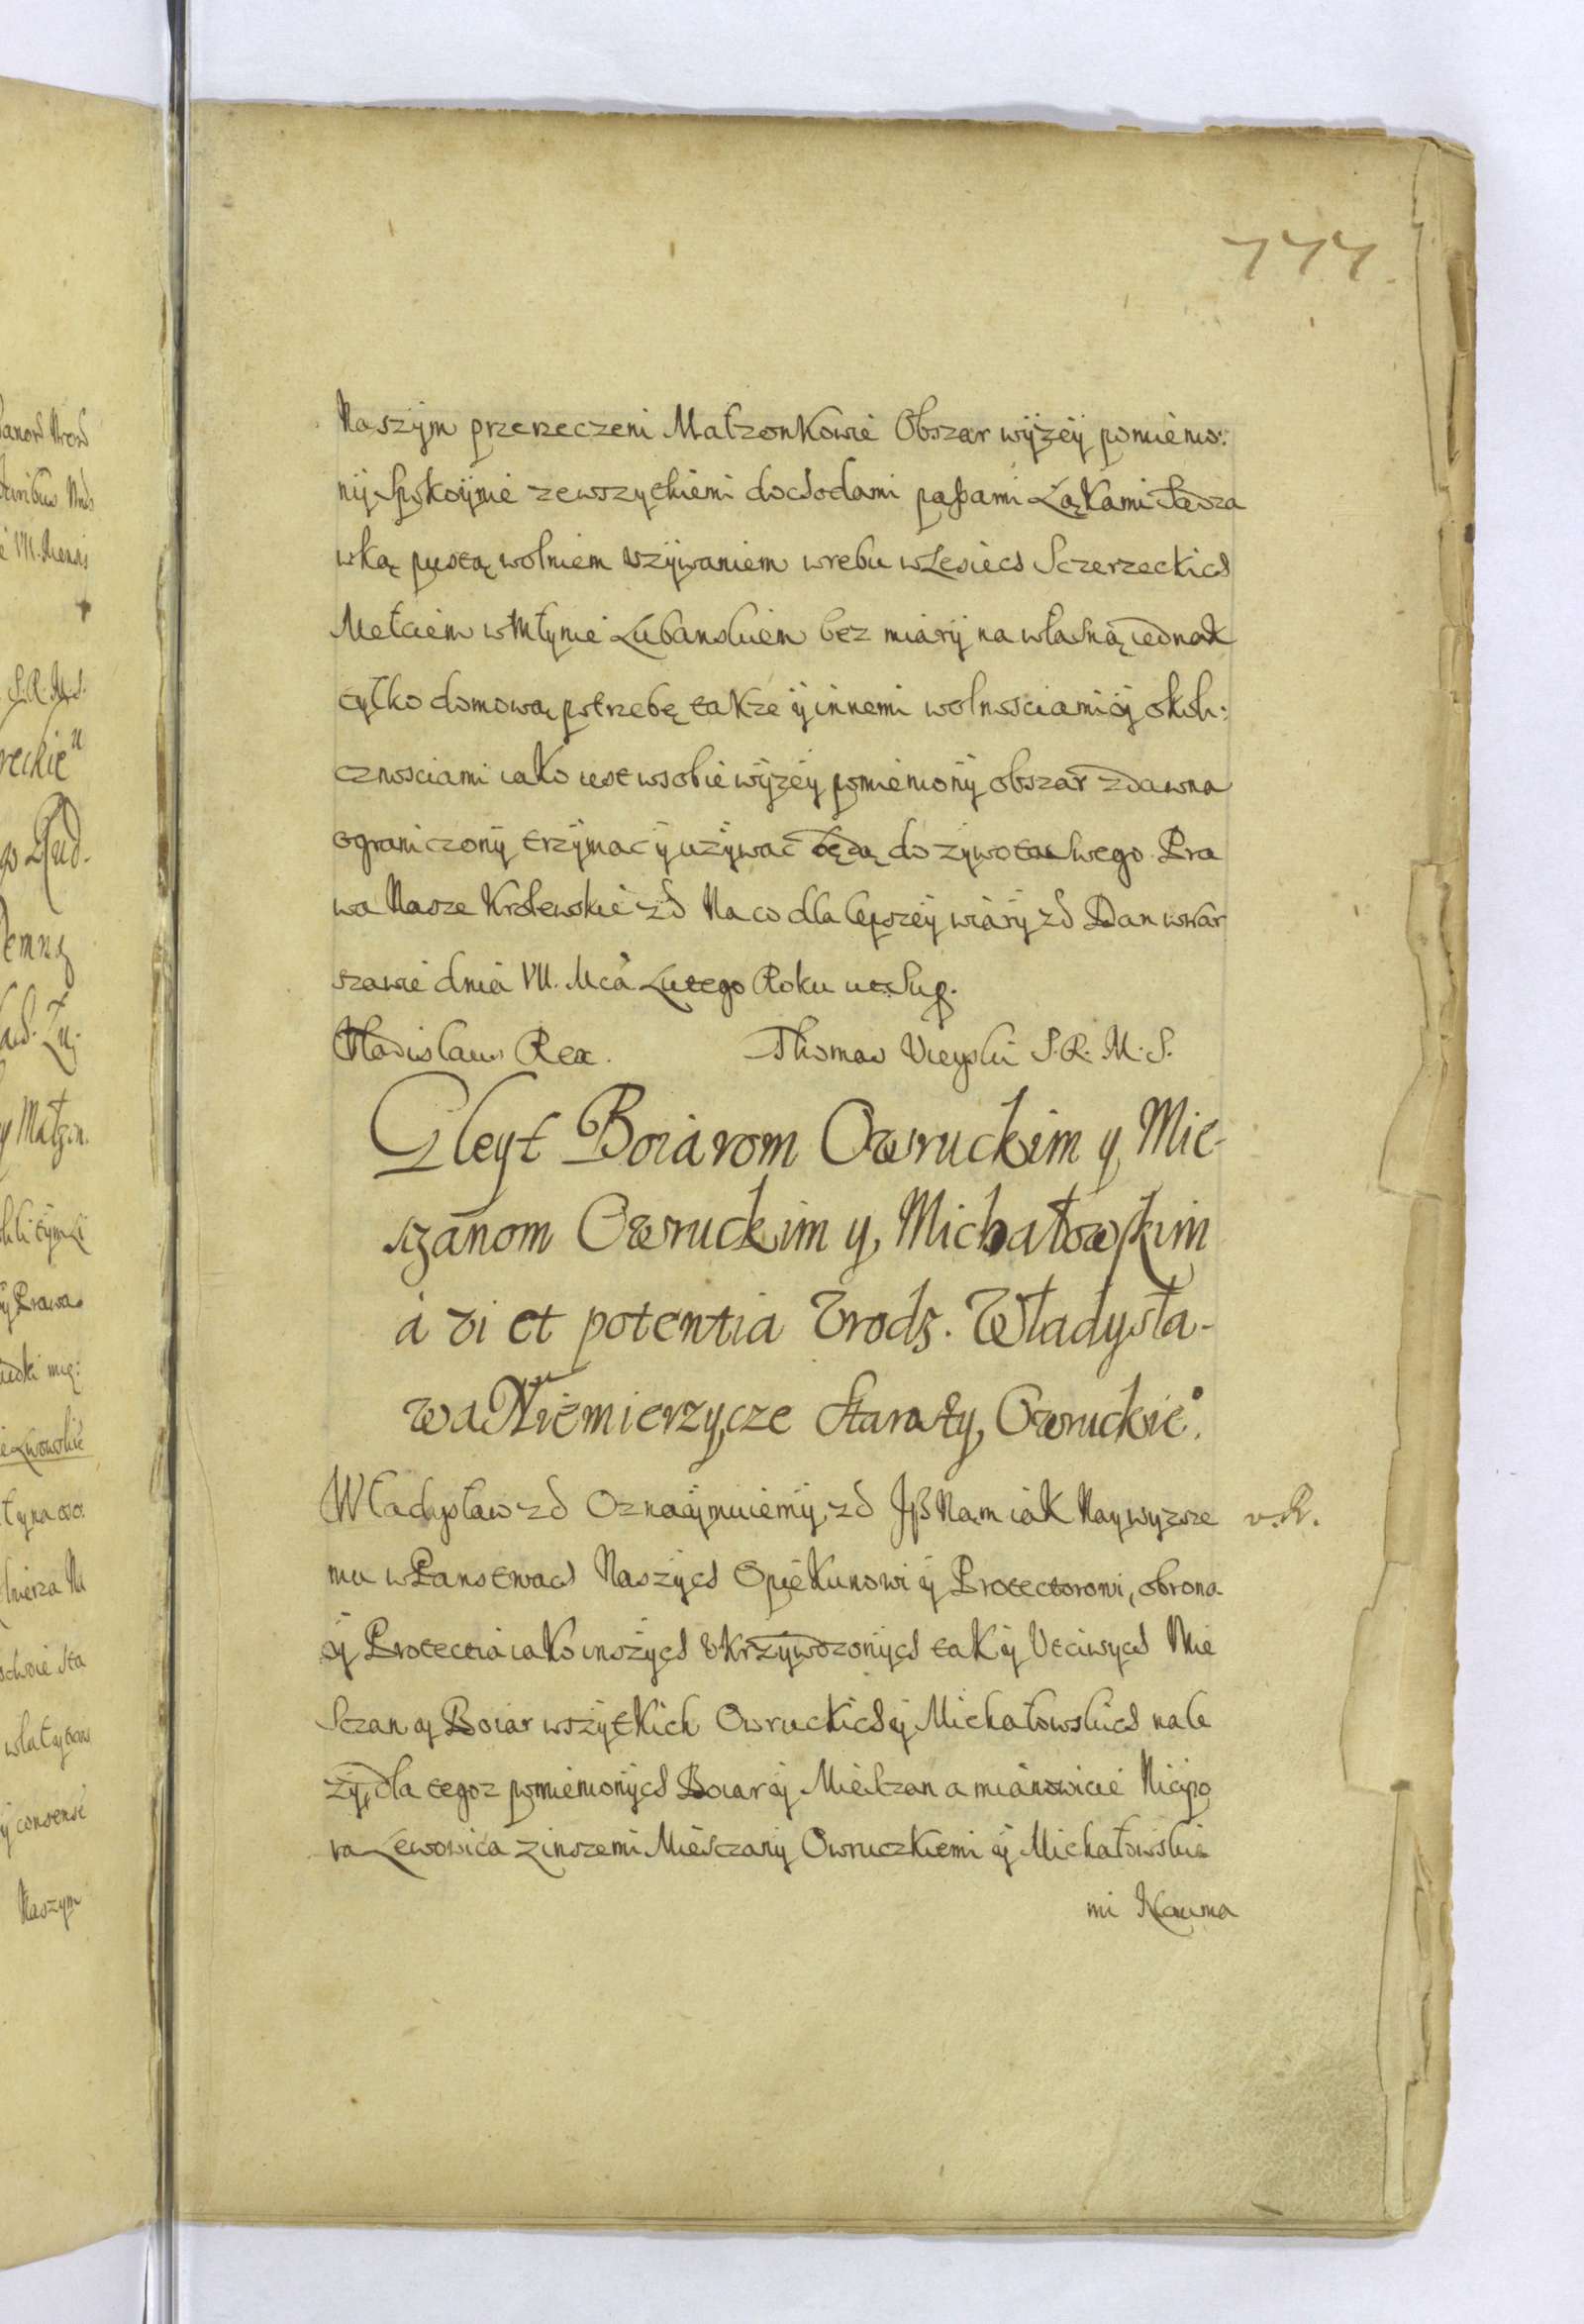 777
Naszym przerzeczeni Małzonkowie Obszar wyzey pomienio:
ny Spokoynie zewszytkiemi dochodami paßami Łąkami Sadza
wką pustą wolniem uzywaniem wrebu wLesiech Sczerzeckich
Mełciem wMłynie Lubanskiem bez miary na własną iednak
tylko domową potrzebę takze y innemi wolnosciami y okoli:
cznosciami iako iest wsobie wyzey pomieniony obszar zdawna
ograniczony trzymac y uzywac będą do zywota Swego Pra
wa Nasze Krolewskie zd Na co dla lepszey wiary zd Dan wWar
szawie dnia VII. Mca Lutego Roku ut Sup.
Vladislaus Rex. Thomas Vieyski S. R. M. S.
Gleyt Boiarom Owruckim y Mie-
szanom Owruckim y Michałowskim
a vi et potentia Vrodz. Władysła-
wa Niemierzycze Starosty Owruckieo.
Władysław zd Oznaymuiemy zd Jß Nam iak Naywyzsze v. R.
mu wPanstwach Naszych Opiekunowi y Protectorowi, obrona
y Protectia iako inszych Vkrzywdzonych tak y Vtciwych Mie
Sczan y Boiar wszytkich Owruckich y Michałowskich nale
zy, dla tegoz pomienionych Boiar y Miesczan a mianowicie Niczypo
ra Lewowica z inszemi Miesczany Owruczkiemi y Michałowskie
mi Nauma